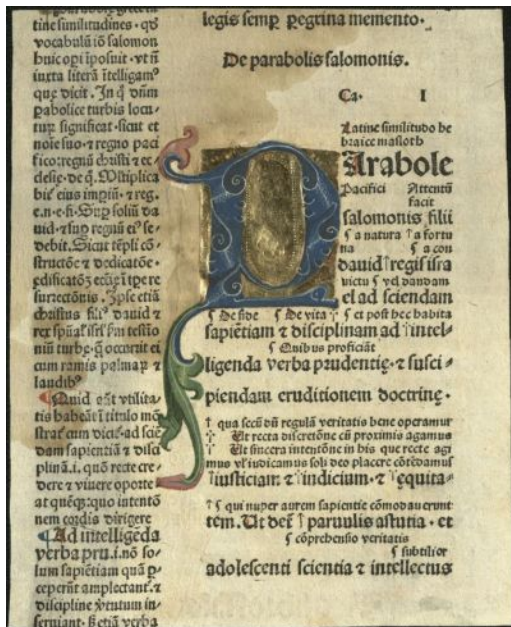 tine similitudines · qď
vocabulũ iõ salomon
huic opi īposuit · vt ñ
iuxta literā ītelligam⁹
que dicit · In q̃ dñm
ꝑabolice turbis locu-
tuꝝ significat · sicut et
noīe suo · ⁊ regno paci
fico: regnũ christi ⁊ ec
clesię · de q̃ · Mltiplica
bit̃ eius impiũ · ⁊ reg.
e.n.e.fi. Suꝑ soliũ da
uid · ⁊ suꝑ regnũ ei⁹ se-
debit · Sicut tẽpli cõ
structõe ⁊ dedicatõe ·
edificatõꝫ
surrectõnis · Ipse etiã
christus fili⁹ dauid ⁊
rex
niũ turbę · q̃ occurrit ei
cum ramis palmaꝝ ⁊
laudib⁹
Quid
tis babeãt ī titulo mõ
strat cum dicit · ad sciẽ
dam sapientiam ⁊ disci
plinā.i. quo recte cre-
dere ⁊ viuere oporte-
at quẽqꝫ: quo intentõ
nem cordis dirigere
Ad intelligẽda
verba pru.i.nõ so-
lum sapiẽtiam quã ꝑ
ceperũt amplectant̃ ⁊
discipline ꝟtutum in-
seruiant · ß etiã verba
legis semꝑ ꝑegrina memento ·
De parabolis salomonis.
Ca · I
Latine similitudo he
braice masloth
PArabole
Pacifici Attentũ
facit
salomonis filii
ꝭ a natura † a fortu
na ꝭ a con
dauid † regis isra
uictu ꝭ vel dandam
el ad sciendam
ꝭ De fide ꝭ De vita † ꝭ et post hec habita
sapiẽtiam ⁊ disciplinam ad † intel-
ꝭ Quibus proficiãt
ligenda verba pꝛudentię · ⁊ susci-
piendam eruditionem doctrinę ·
† qua secũdũ regulā veritatis bene operamur
† Ut recta discretõne cũ proximis agamus
Ut sincera intentõne in his que recte agi
mus vł iudicamus soli deo placere cõtẽdamus
† iusticiam ⁊ † iudicium · ⁊ † ęquita-
† ꝭ qui nuper aurem sapientie cõmodauerunt
tem. Ut deť † paruulis astutia · et
ꝭ cõprehensio veritatis
ꝭ subtilior
adolescenti scientia ⁊ intellectus